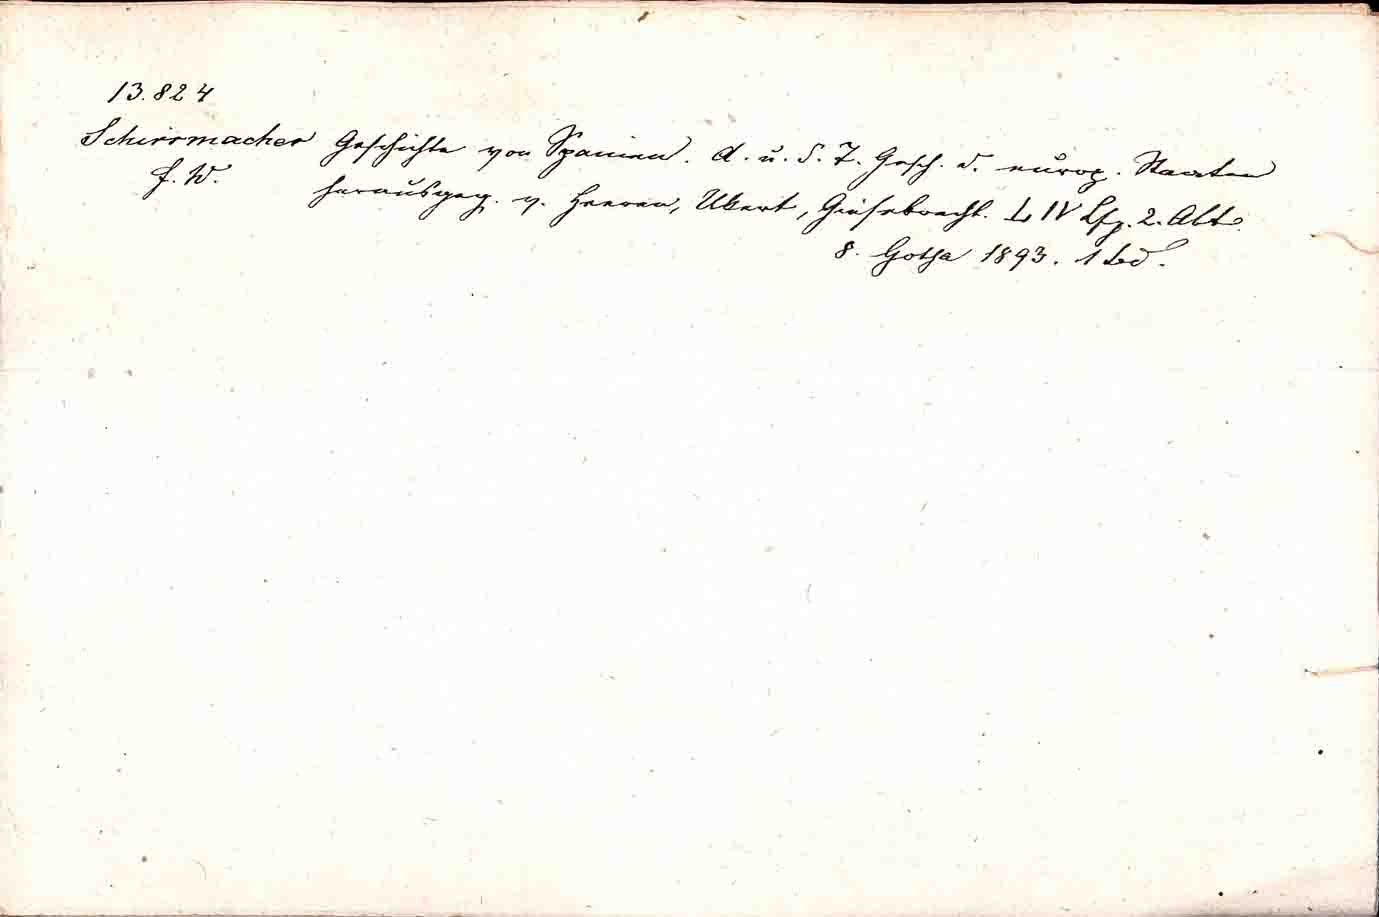 13.824
Schirrmacher Geschichte von Spanien. A. u. d. T. Gesch. d. europ. Staaten
F. W. herausgeg. v. Heeren, Ukert, Giesebrecht. L IV Lfg. 2. Abt.
8. Gotha 1893. 1 Bd.